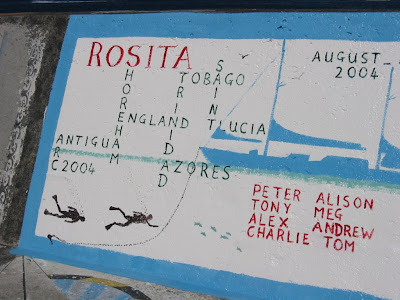 ROSITA
SHOREHAM
SAINT LUCIA
TOBAGO
TRINIDAD
ENGLAND
ANTIGUA
ARC2004
AZORES
AUGUST-
2004
PETER ALISON
TONY MEG
ALEX ANDREW
CHARLIE TOM